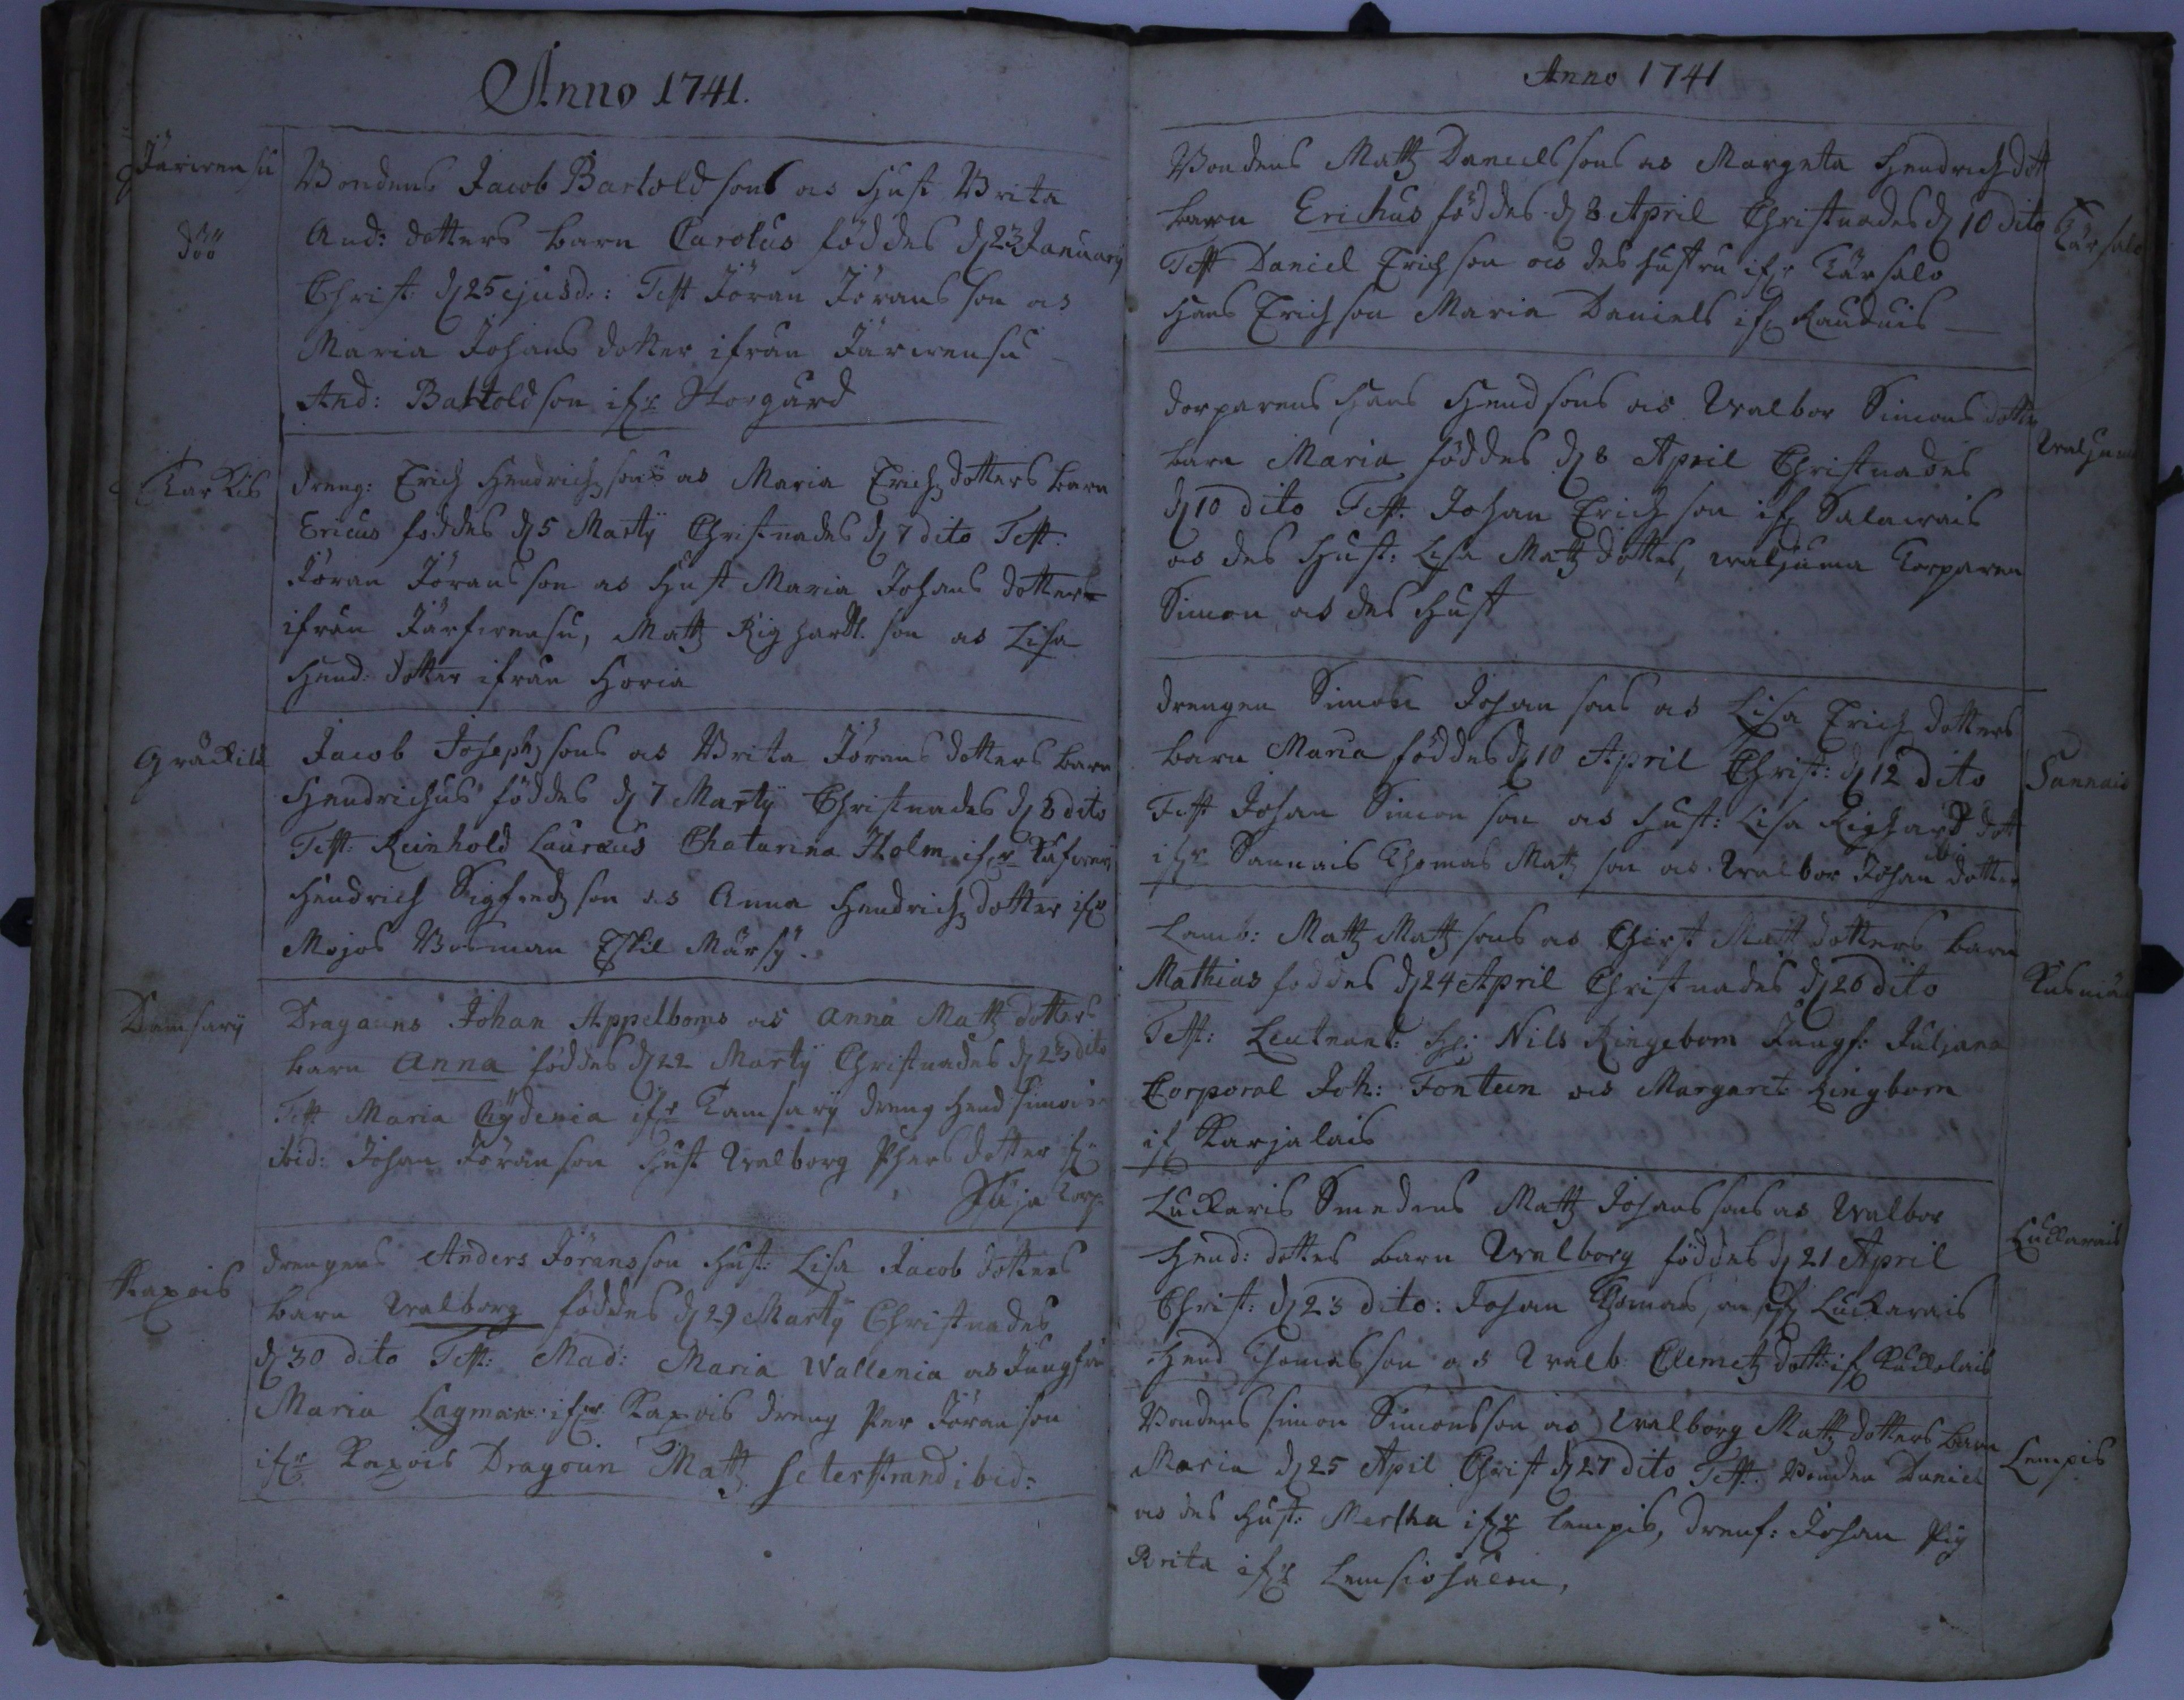 Anno 1741.
Järwensu
Bondens Jacob Bartold sons as Hust Brita
And: dotters barn Carolus föddes dj 23 January
Christ: dj 25 ejusd.: Test Jöran Jörans son as
Maria Johans dotter ifrån Järwensu
And: Bartold son ifr Storgård
Karkis
dreng: Erich Hendrichsons as Maria Erichdotters barn
Ericus foddes dj 5 Martij Christnades dj 7 dito Test.
Jöran Jöransson as Hust Maria Johans dotter
ifrån Järfwensu, Matz Righardt. son as Lisa
Hend: dotter ifrån Horia
Gräckilä
Jacob Josephsons as Brita Jörens dotters barn
Hendrichus föddes dj 7 Martij Christnades dj 8 dito
Test: Reinhold Lauraus Chatarina Holm ifr
Hendrich Sigfredson as Anna Hendrichdotter ifr
Mojos Boeman Eskil Märsy.
Damsarij
Dragouns Johan Appelboms as Anna Matz dotters
barn Anna föddes dj 22 Martij Christnades dj 23 dito
Test Maria Cydenia ifr Tamsarij dreng Hend Simon
ibid: Johan Jöranson Hust Walborg Phersdotter ifr
Torp.
Kaxois
drengens Anders Jöransson Hust: Lisa Jacob dotters
barn Walborg föddes dj 29 Martij Christnades
dj 30 dito Test: Mad: Maria Wallenia as Jungfru
Maria Lagman ifr Kaxois dreng Per Jöran son
ifr Kaxois Dragoun Matz Seterstrand ibid:
Anno 1741
Bondens Matz Danielssons as Margeta Hendrichdott
barn Erichus föddes dj 8 April Christnades dj 10 dito
Kärsalo
Test Daniel Erichson as des hustru ifr Kärsalo
Hans Erichson Maria Daniels ifr Rauduis
Torparens Hans Hendsons as Walbor Simons dotters
barn Maria föddes dj 8 April Christnades
dj 10 dito Test. Johan Erichson ifr Salawais
as des Hust: Lisa Matz dotter, waljuma Torparen
Simon as des Hust
drengen Simon Johansons as Lisa Erich dotters
barn Maria föddes dj 10 April Christ: dj 12 dito
Sannais
Test Johan Simon son as Hust: Lisa Righard dott
ifr Sannais Thomas Matz son as Walbor Johan dotter
Lamb: Matz Matzsons as Christ Matt dotters barn
Mathias foddes dj 24 April Christnades dj 26 dito
Test: Leutnant: Nils Ringebom Jungf: Juljana
Corporal Joh: Fonteen as Margaret Ringbom
ifr Karjalais
Luckaris Smedens Matz Johanssons as Walbor
Luckarais
Hend: dotter barn Walborg föddes dj 21 April
Christ: dj 23 dito: Johan Thomas son ifr Luckarais
Hend Thomasson as Walb: Clemetz dott: ifr Kuckolais
Bondens Simon Simonsson as Walborg Matz dotters barn
Maria dj 25 April Christ dj 27 dito Test: Bonden Daniel
Lempis
as des Hust: Mertha ifr Lempis, Johan Pig
Brita ifr